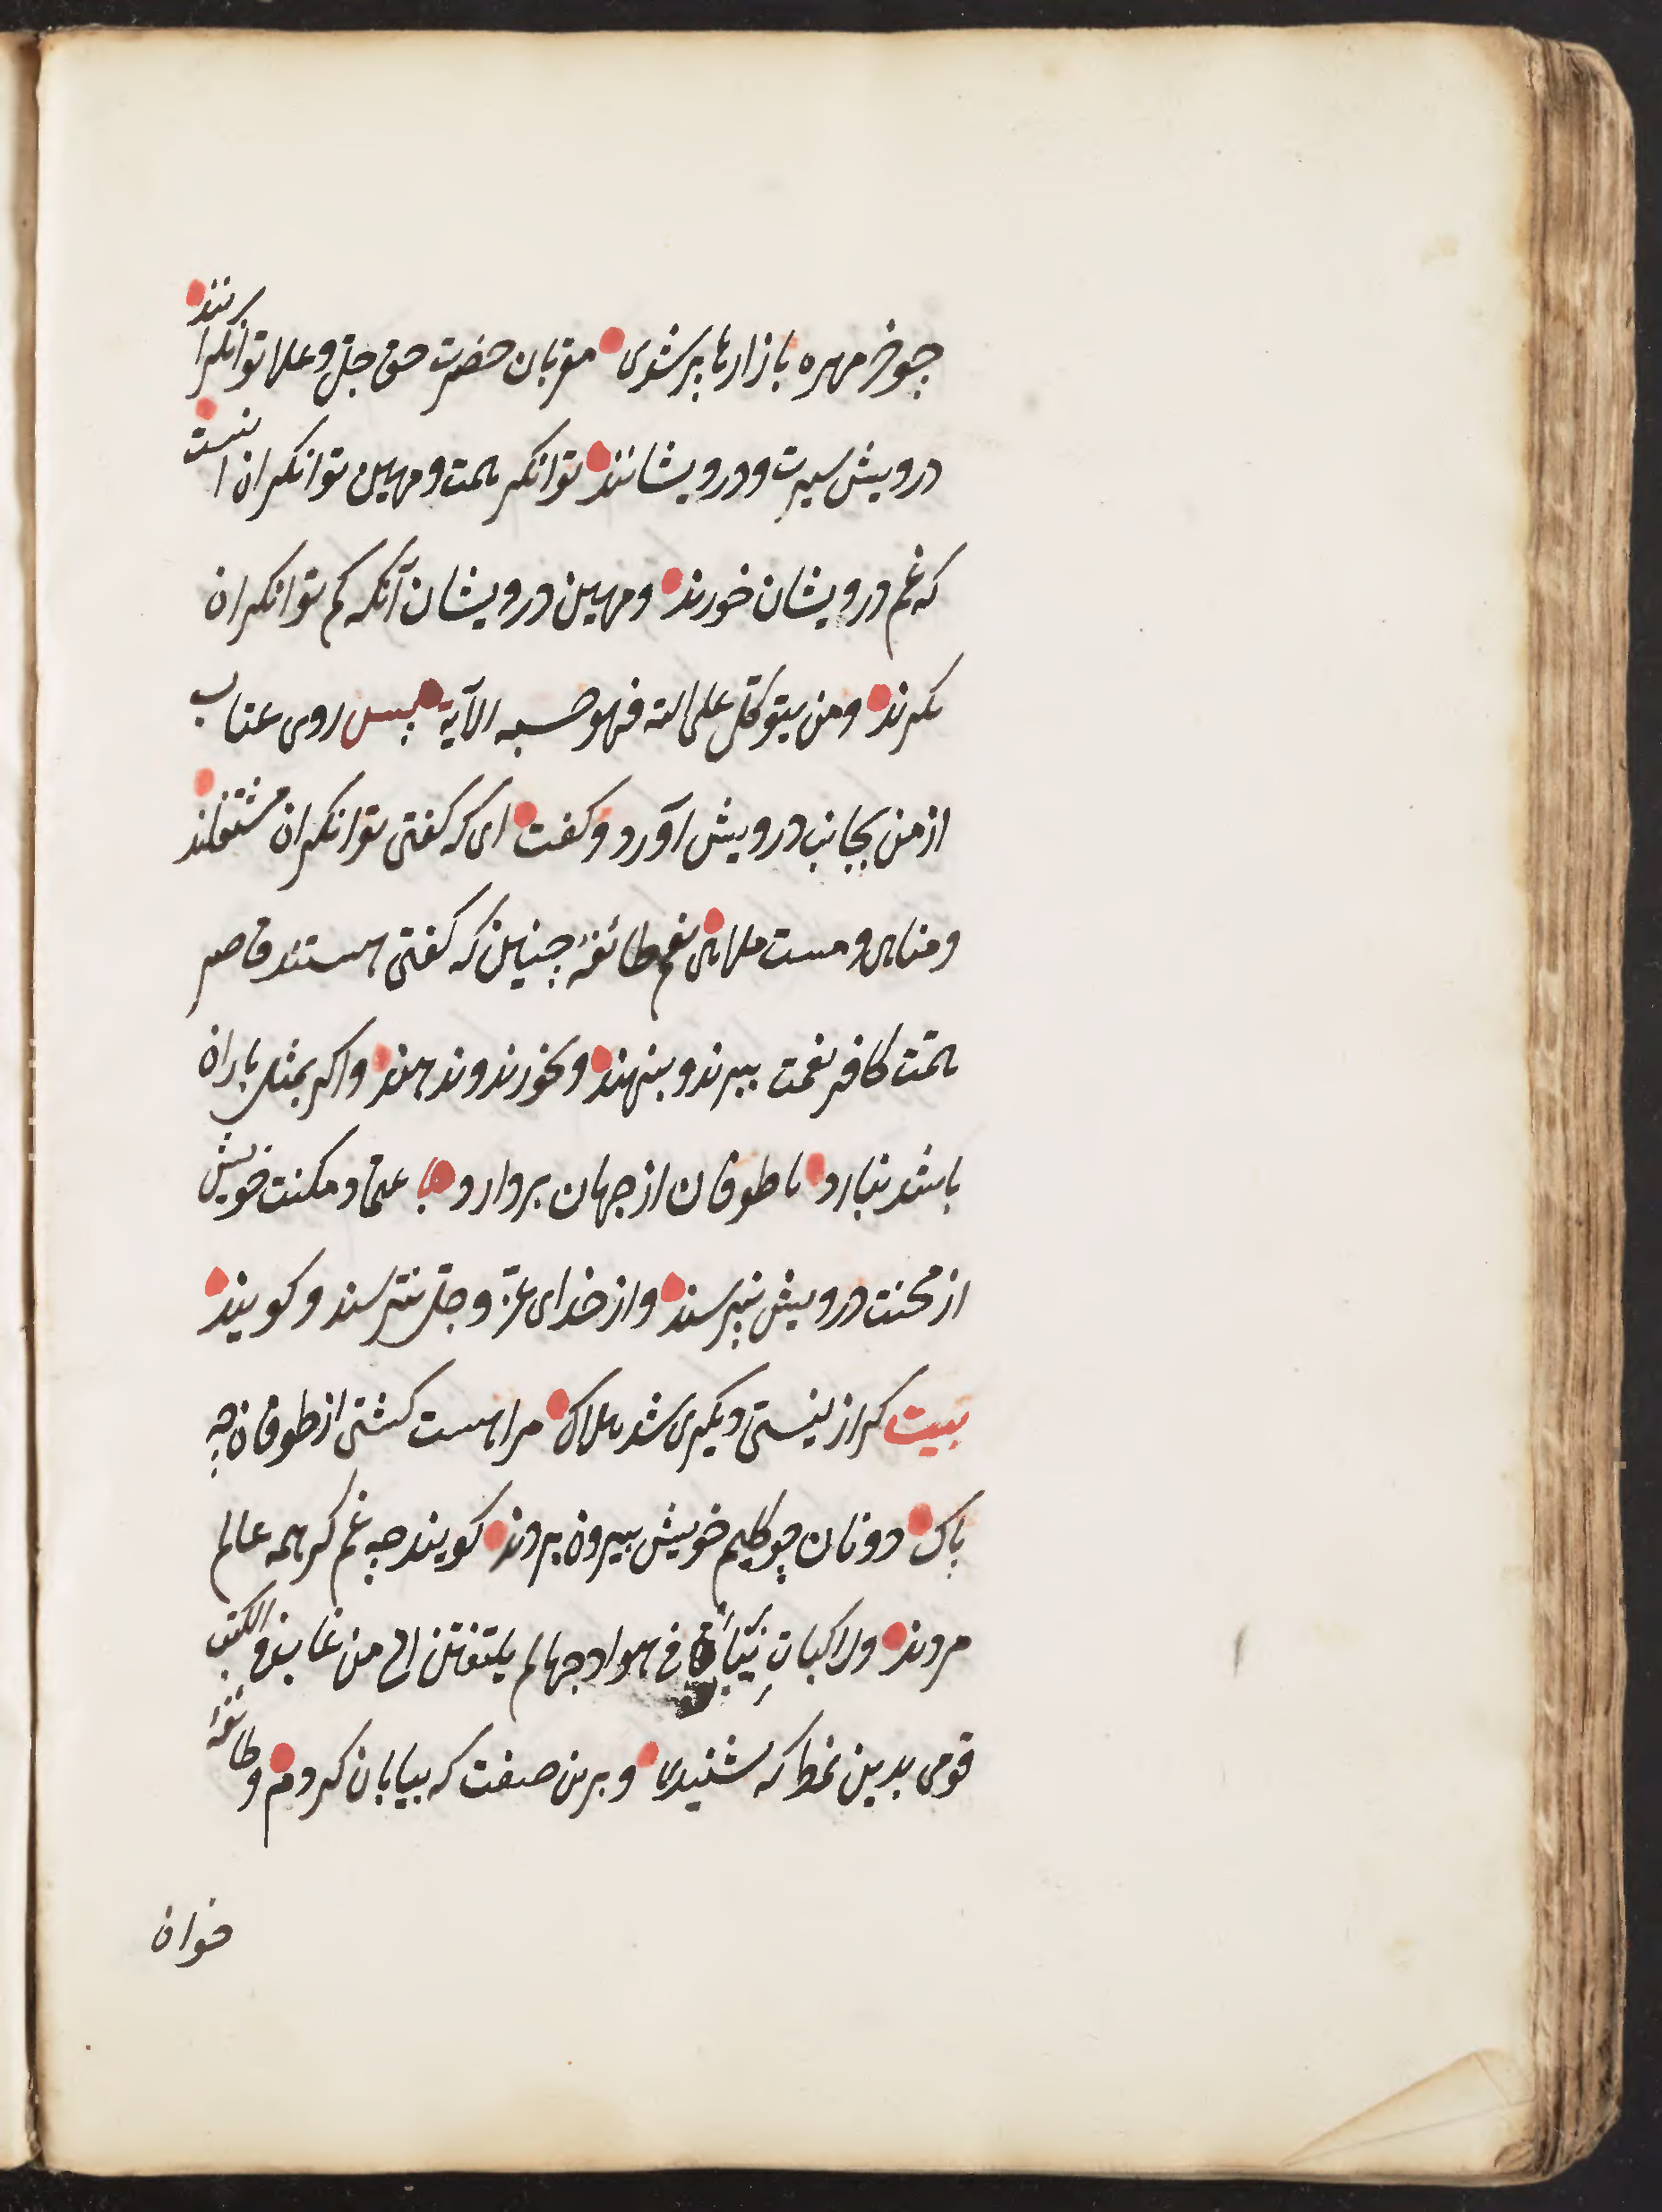 چو خرمهره بازارها پر شدی مقربان حضرت حق جلّ و علا توانکرانند
درویش سیرت و درویشانند توانکر همت و مهین توانکران انست
که غم درویشان خورند و مهین درویشان آنکه کم توانکران
کیرند ومن یتوکّل علی الله فهو حسبه الآیه پس روی عتاب
از من بجانب درویش آورد و کفت ای که کفتی توانکران مشتغلند
و مناهی و مست ملاهی نعم طائفهٔ چنین که کفتی هستند قاصر
همّت کافر نعمت ببرند و بنهند و نخورند و ندهند و اکر بمثل باران
باشد نبارد یا طوفان از جهان بردارد با عتماد مکنت خویش
از محنت درویش نپرسند و از خدای عزّ و جلّ نترسند و کویند
بیت کر از نیستی دیکری شد هلاک مرا هست کشتی از طوفان چه
باک دونان چو کلیم خویش بیرون بردند کویند چه غم کر همه عالم
مردند وراکبات نیاق فی هوادجها لم یلتفتن الی من غاب فی الکثب
قومی بدین نمط که شنیدی و برین صفت که بیان کردم و طائفهٔ
خوان